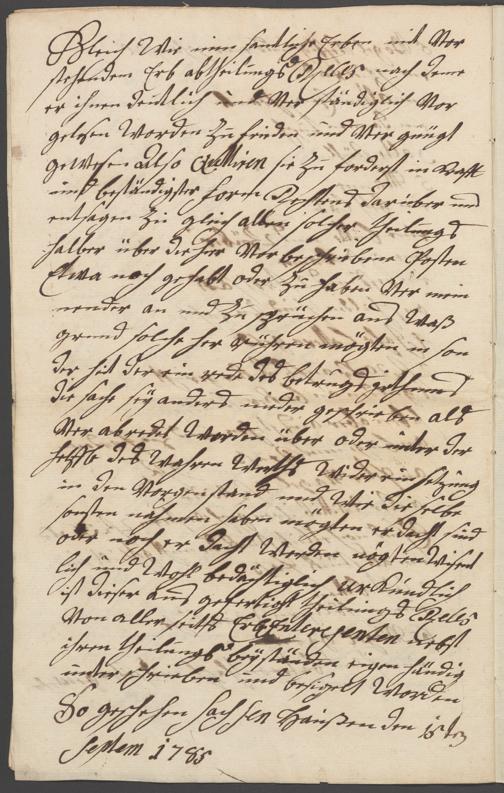 Gleich Wie nun sämtliche Erben mit Vor
stehendem Erb abtheilungs Reces nach deme
er ihnen deutlich und Ver ständiglich Vor
gelesen Worden Zu frieden und Ver gnügt
gewesen also Quittiren sie Zu forderst in
und beständigster form Rechtens darüber und
entsagen Zu gleich allen solcher theilungs
halber über die hier Vor beschriebene Posten
Etwa noch gehabt oder Zu haben Ver mein
ender an und Zu sprüchen aus Waß
grund solche her rühren mögten in son
der heit der ein rede des betrugs irthums
die sache sey anders nieder geschrieben als
Ver abredet Worden über oder unter der
helffte des Wahren Werths Wider einsetzung
in den Vorgenstand und Wie dieselbe
sonsten nahmen haben mögten er dacht sind
oder noch er dacht Werden mögten Wisent
lich und Wohl bedächtiglich urKundlich
ist dieser aus gefertigt theilungs Reces
Von aller seits Erbinteresenten nebst
ihren theilungs beyständen eigen händig
unter schrieben und besigelt Worden
So geschehen Sachsen Haußen den 15ten
Septem 1785